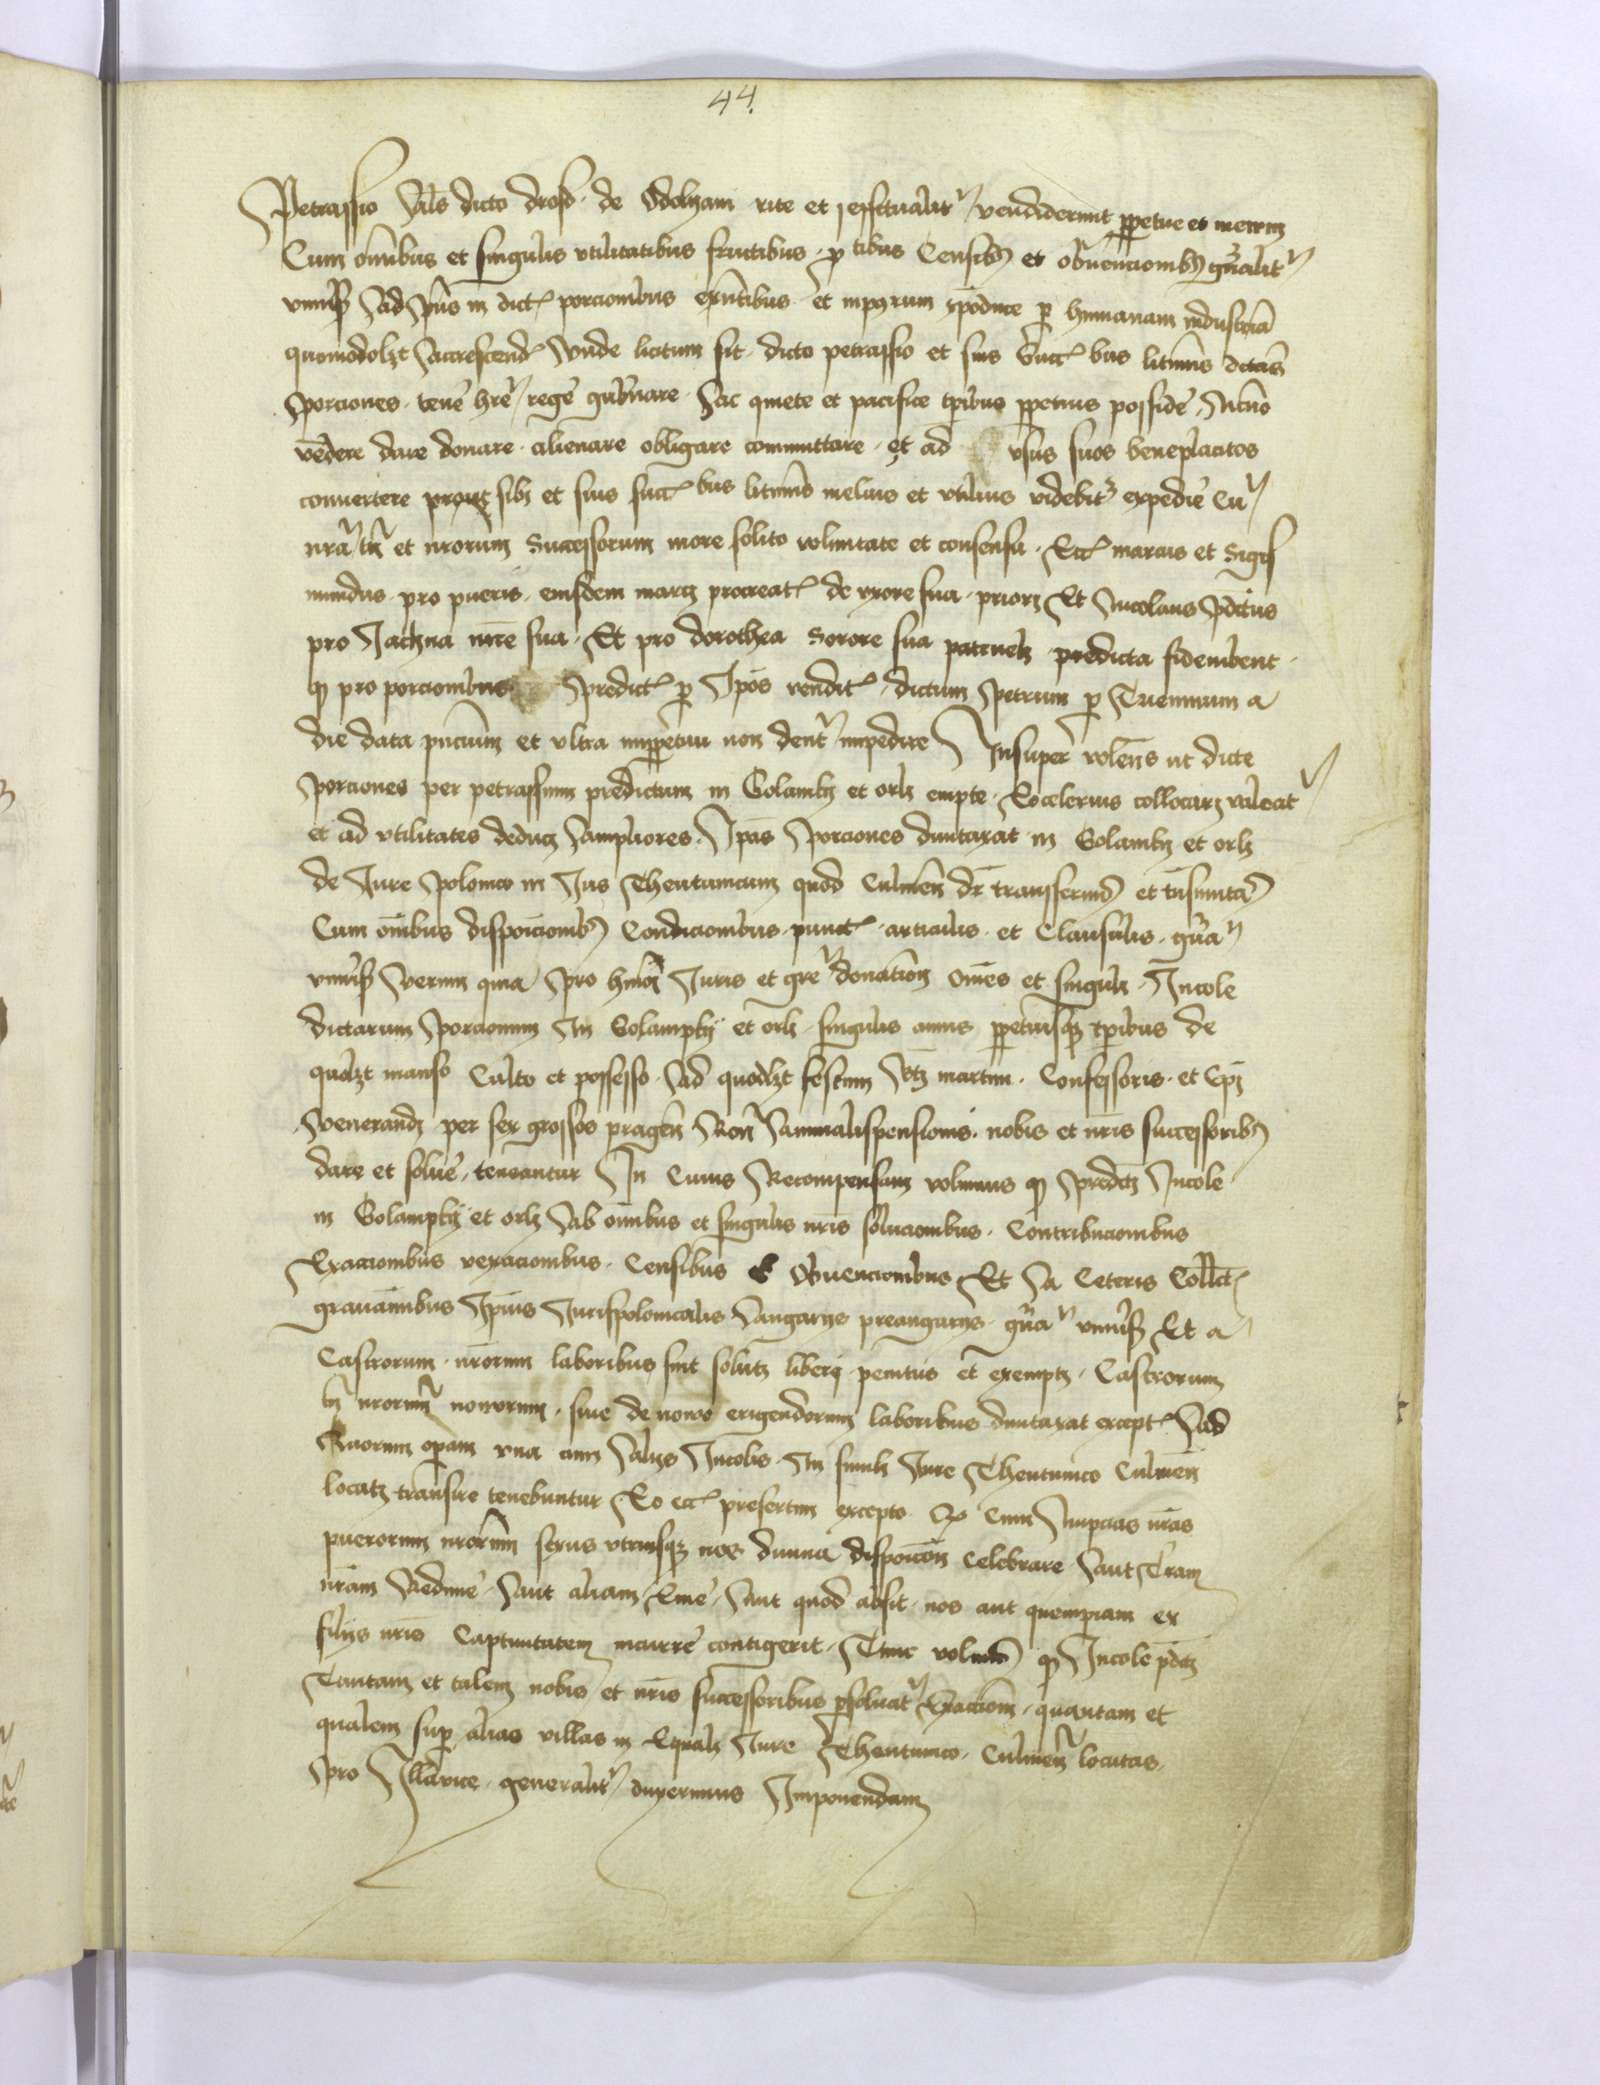 44.
Petrassio als dicto drosd de Odolzani rite et effectualitr vendiderunt ppetue et
Cum omibus et singulis vtilitatibus fructibus p tibus Censibȝ et obuencionibȝ gnalitr
ad in dict porcionibus exntibus et p humanam industria
quomodolzt accrescend Unde licitum sit dicto petrassio et suis succ bus litimis
porciones tene hre rege gubnare ac quiete et pacifice tpibus ppetuis posside
vendere dare donare alienare obligare commuttare et ad vsus suos beneplacitos
conuertere prout sibi et suis succ bus litimis melius et vtilius videbitr expedie Cu
nra tn et nrorum Successorum more solito voluntate et consensu Ecc marcus et Sigis
mundus pro pueris eiusdem marci procreat de vxore sua priori Et Nicolaus pdictus
pro Jachna mre sua Et pro dorothea Sorore sua patrueli predicta fideiubent
qȝ pro porcionibus predict p Ipos vendit dictum petrum p Triennium a
die data et vltra imppetuu non dent impedire Insuper volens ut dicte
porciones per petrassium predictum in Golamky et orli empte Eo celerius collocari valeat
et ad vtilitates deduci ampliores Ipas porciones duntaxat in Golamky et orli
de Jure polonico in Jus Theutunicum quod Culmen dr transferimȝ et
Cum omibus disposicionibȝ Condicionibus punct articulis et Clausulis
Verum quia pro hmoi Juris et gre donacion omes et singuli Incole
dictarum porcionum In Golampky et orli singulis annis ppetuisqȝ tpibus de
quolzt manso Culto et possesso ad quodlzt festum Sti martini Confessoris et Epi
Venerandi per sex grossos pragen Ron annualis pensionis nobis et nris successoribȝ
dare et solue teneantur In Cuius Recompensam volumus qȝ predcti Incole
in Golampky et orli ab omibus et singulis nris solucionibus Contribucionibus
Exaccionibus vexacionibus Censibus obuencionibus Et a Ceteris
grauaminibus Ipius Juris polonicalis angarys preangarys Et a
Castrorum nrorum laboribus sint soluti liberi penitus et exempti Castrorum
tn nrorum nouorum siue de nouo erigendorum laboribus duntaxat except ad
Quorum opam vna cum alys Incolis In simili Jure Theutunico Culmen
locati transire tenebuntur Eo ecc presertim excepto Cum Nupcias nras
puerorum nrorum sexus vtriusqȝ nos diuina disposicion celebrare aut Tram
nram Redime aut aliam Eme aut quod absit nos aut quempiam ex
filys nris Captiuitatem incurre contigerit Tunc volumȝ qȝ Incole pdci
Tantam et talem nobis et nris successoribus psoluat Exaccionem quantam et
qualem sup alias villas in Equali Jure Theutunico Culmen locatas
pro Illa vice generalitr duxerimus Imponendam